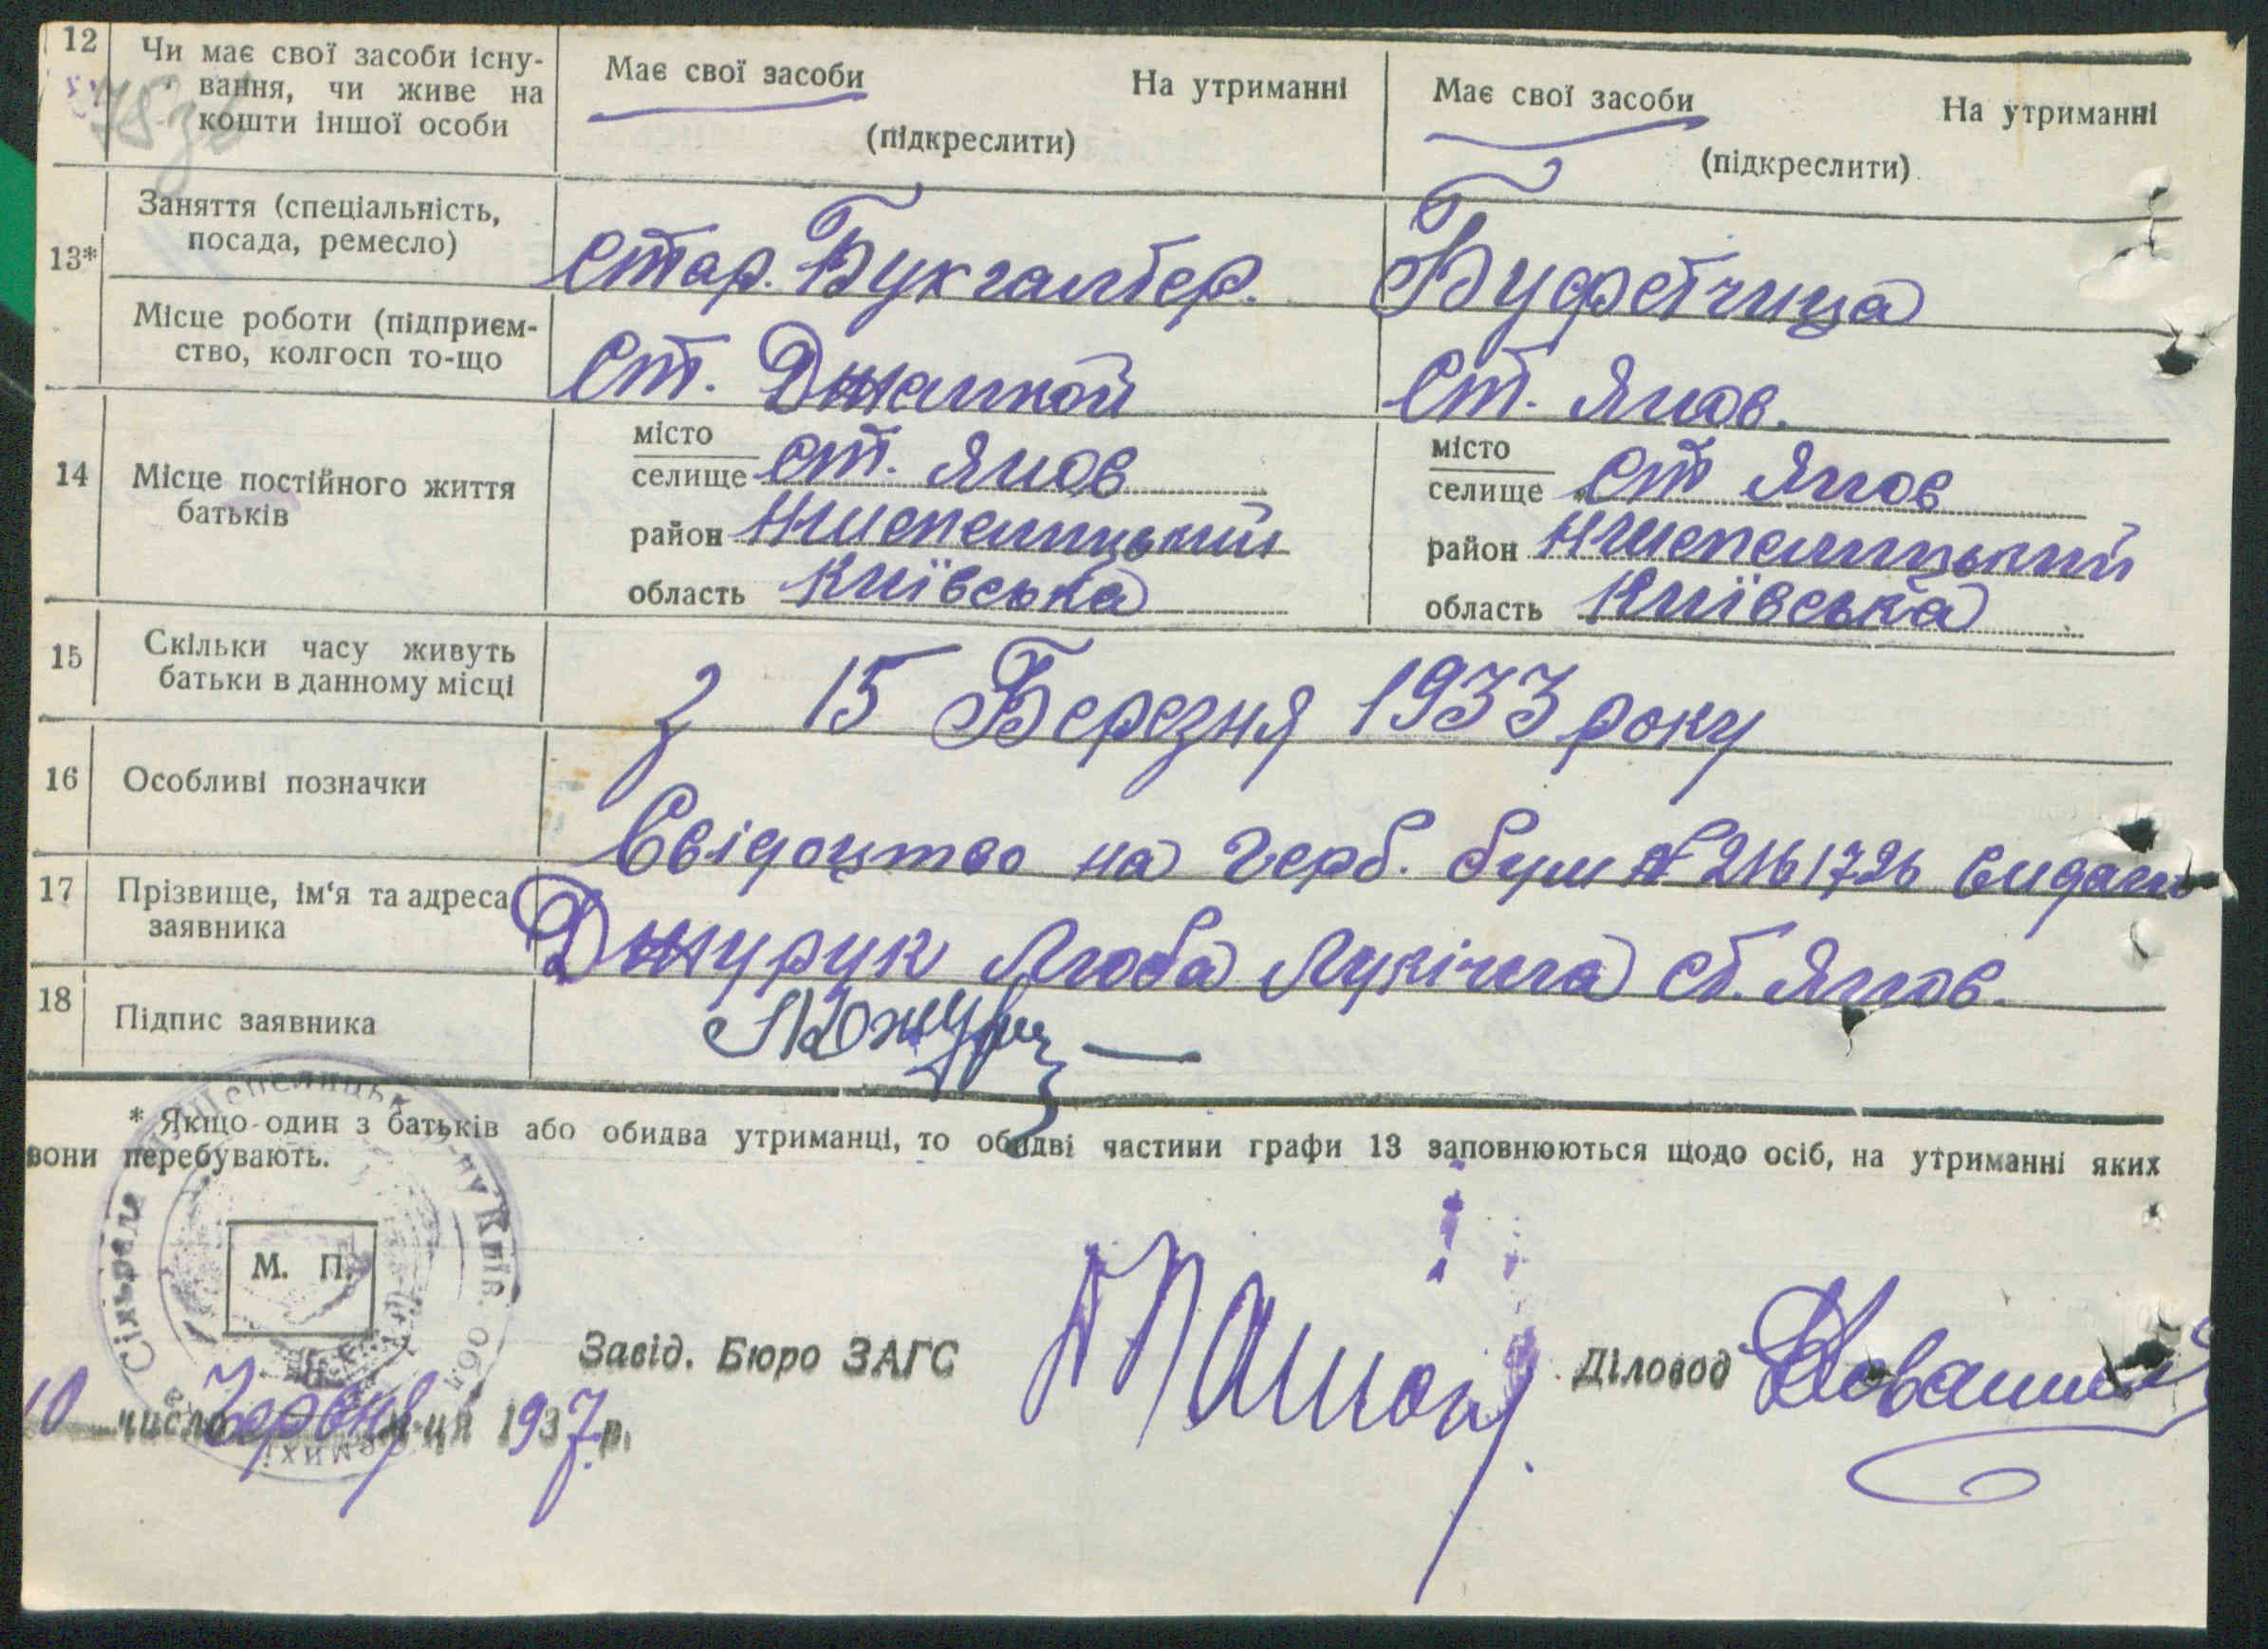 12 Чи має свої засоби існу-
вання, чи живе на
кошти іншої особи
Має свої засоби На утриманні
(підкреслити)
Має свої засоби На утриманні
(підкреслити)
13* Заняття (спеціальність,
посада, ремесло)
Стар. Бухгалтер.
Буфетчица
Місце роботи (підприєм-
ство, колгосп то-що
Ст. Джанкой
Ст. Янов.
14 Місце постійного життя
батьків
місто
селище ст. Янов
район Чишепелицький
область Київська
місто
селище ст Янов
район Чишепелицький
область Київська
15 Скільки часу живуть
батьки в данному місці
з 15 Березня 1933 року
16 Особливі позначки
Свідоцтво на герб. бум № 2161726 видано
17 Прізвище, ім'я та адреса
заявника
Джурук Люба Лукічна ст. Янов.
18 Підпис заявника
* Якщо один з батьків або обидва утриманці, то обидві частини графи 13 заповнюються щодо осіб, на утриманні яких
вони перебувають.
М. П.
Завід. Бюро ЗАГС
Діловод
10 число Червня м-ця 1937 р.